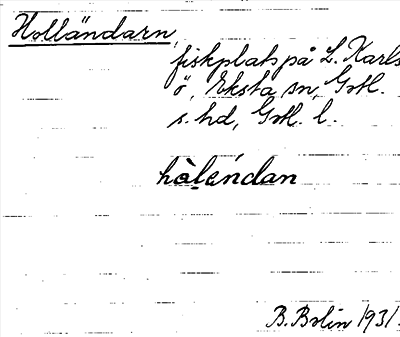 Holländarn,
fiskplats på L. Karls
ö, Eksta sn, Gotl.
s. hd, Gotl. l.
hòlęńdan
B. Bolin 1931.